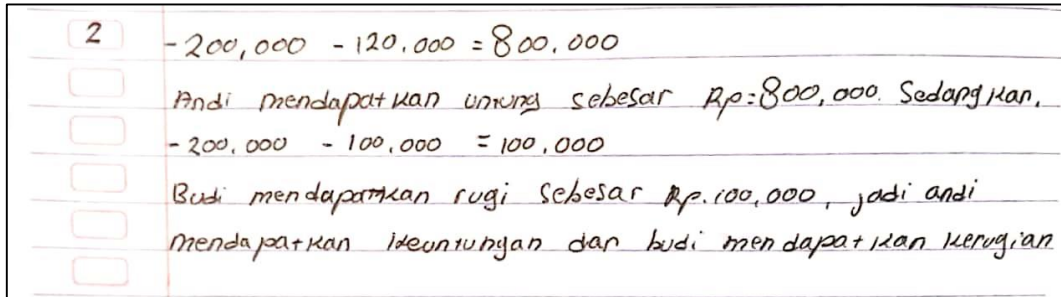 2 -200,000 -120.000 = 800.000
Andi mendapatkan untung sebesar Rp:800,000. Sedangkan,
-200.000 - 100,000 = 100,000
Budi mendapatkan rugi sebesar Rp.100,000, jadi andi
mendapatkan keuntungan dan budi mendapatkan kerugian